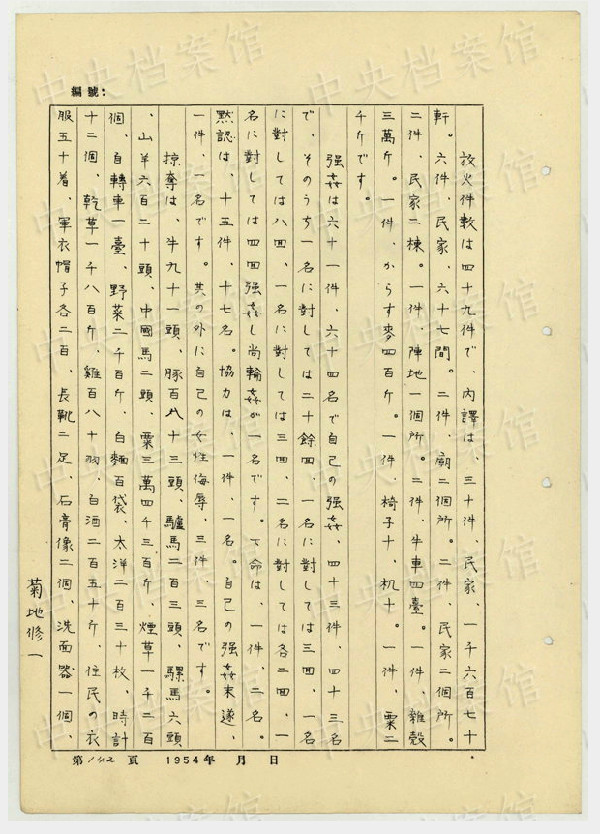 中央档案馆
編號：
放火件数は四十九件で、内譯は、三十件、民家、一千六百七十
軒。六件、民家、六十七間。二件、廟二個所。二件、民家二個所。
二件、民家二棟。一件、陣地一個所。二件、牛車四臺。一件、雑穀
三萬斤。一件、からす麥四百斤。一件、椅子十、机十。一件、粟二
千斤です。
強姦は六十一件、六十四名で自己の強姦、四十三件、四十三名
で、そのうち一名に対しては二十餘回、一名に対しては三回、一名
に対しては八回、一名に対しては三回、二名に対しては各二回、一
名に対しては四回強姦し尚輪姦が一名です。命は、一件、二名。
黙認は、十三件、十七名。協力は、一件、一名。自己の強姦未遂、
一件、一名です。其の外に自己の女性侮辱、三件、三名です。
掠奪は、牛九十一頭、豚百八十三頭、驢馬二百三頭、騾馬六頭
、山羊六百二十頭、中國馬二頭、粟三萬四千三百斤、煙草一千二百
個、自轉車一臺、野菜二千百斤、白麵百袋、太洋二百三十枚、時計
十二個、乾草一千八百斤、雞百八十羽、白酒二百五十斤、住民の衣
服五十着、軍衣帽子各二百、長靴二足、石膏像二個、洗面器一個、
菊地修一
第 142 頁 1954年 月 日